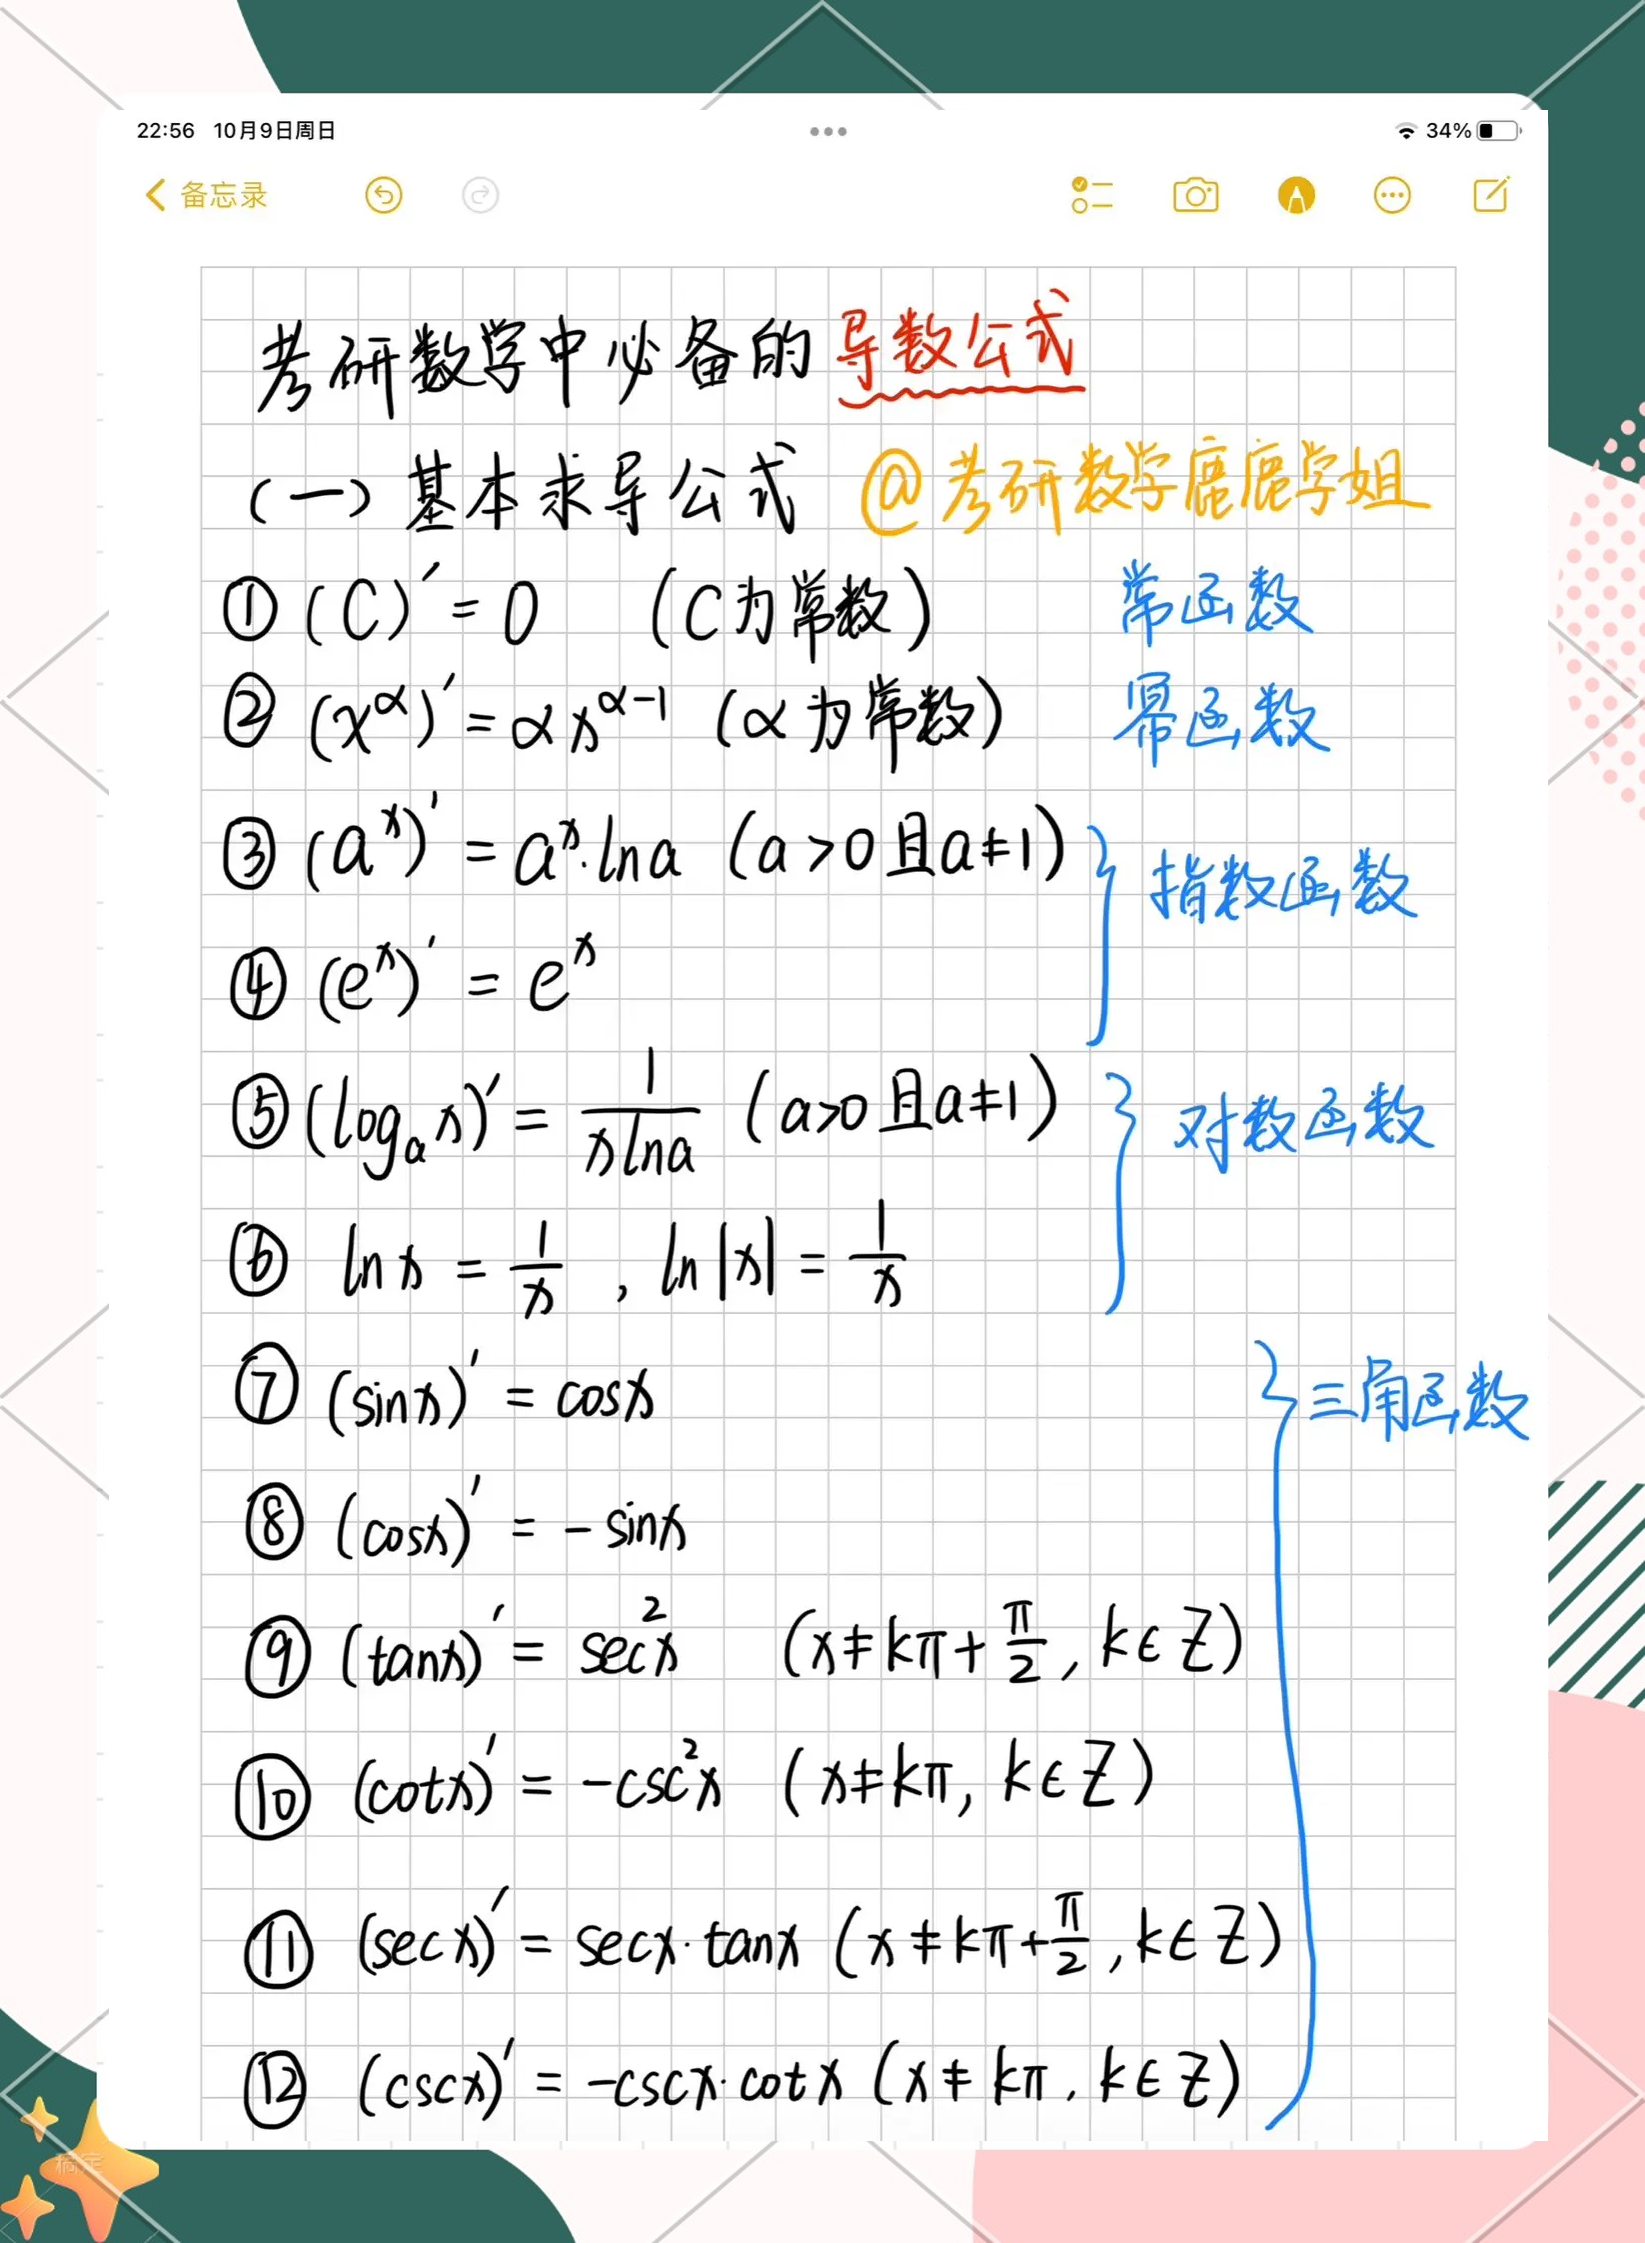 22:56 10月9日周日
34%
备忘录
考研数学中必备的导数公式
(一)基本求导公式 @考研数学鹿鹿学姐
① (C)′ = 0 (C为常数) 常函数
② (x^α)′ = αx^(α-1) (α为常数) 幂函数
③ (a^x)′ = a^x·lna (a>0且a≠1) 指数函数
④ (e^x)′ = e^x
⑤ (log_a x)′ = 1/(xlna) (a>0且a≠1) 对数函数
⑥ lnx = 1/x , ln|x| = 1/x
⑦ (sinx)′ = cosx 三角函数
⑧ (cosx)′ = -sinx
⑨ (tanx)′ = sec²x (x≠kπ+π/2, k∈Z)
⑩ (cotx)′ = -csc²x (x≠kπ, k∈Z)
⑪ (secx)′ = secx·tanx (x≠kπ+π/2, k∈Z)
⑫ (cscx)′ = -cscx·cotx (x≠kπ, k∈Z)
稿定